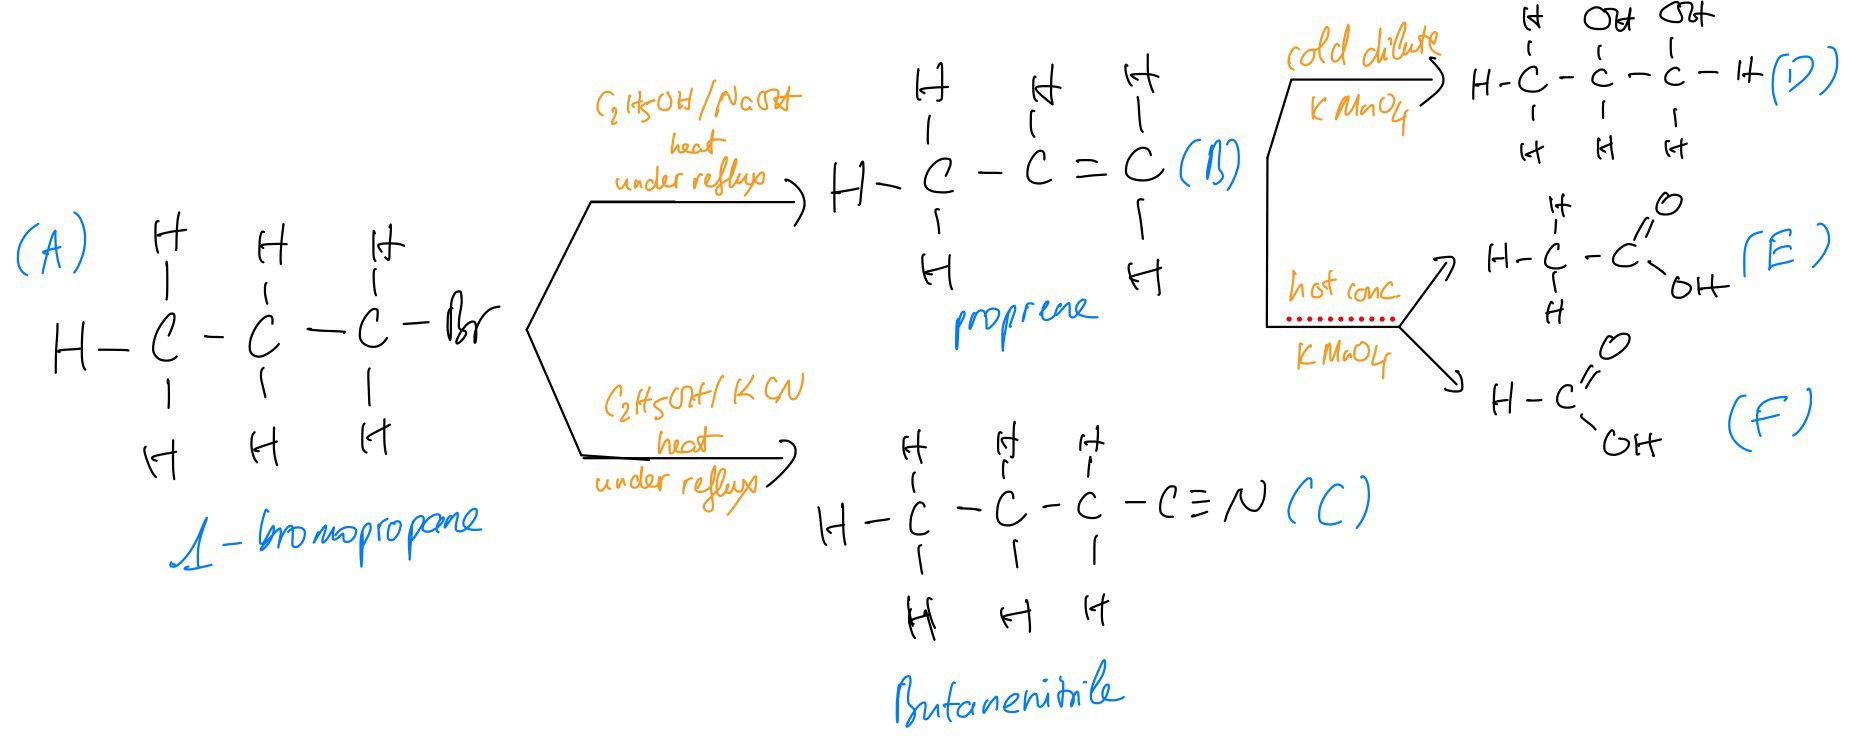 (A)
H H H
H - C - C - C - Br
H H H
1-bromopropane
C₂H₅OH/NaOH
heat
under reflux
H H H
H - C - C = C (B)
H H
proprene
C₂H₅OH/KCN
heat
under reflux
H H H
H - C - C - C - C ≡ N (C)
H H H
Butanenitrile
cold dilute
KMnO₄
H OH OH
H - C - C - C - H (D)
H H H
hot conc.
KMnO₄
H O
H - C - C (E)
OH
H
O
H - C (F)
OH